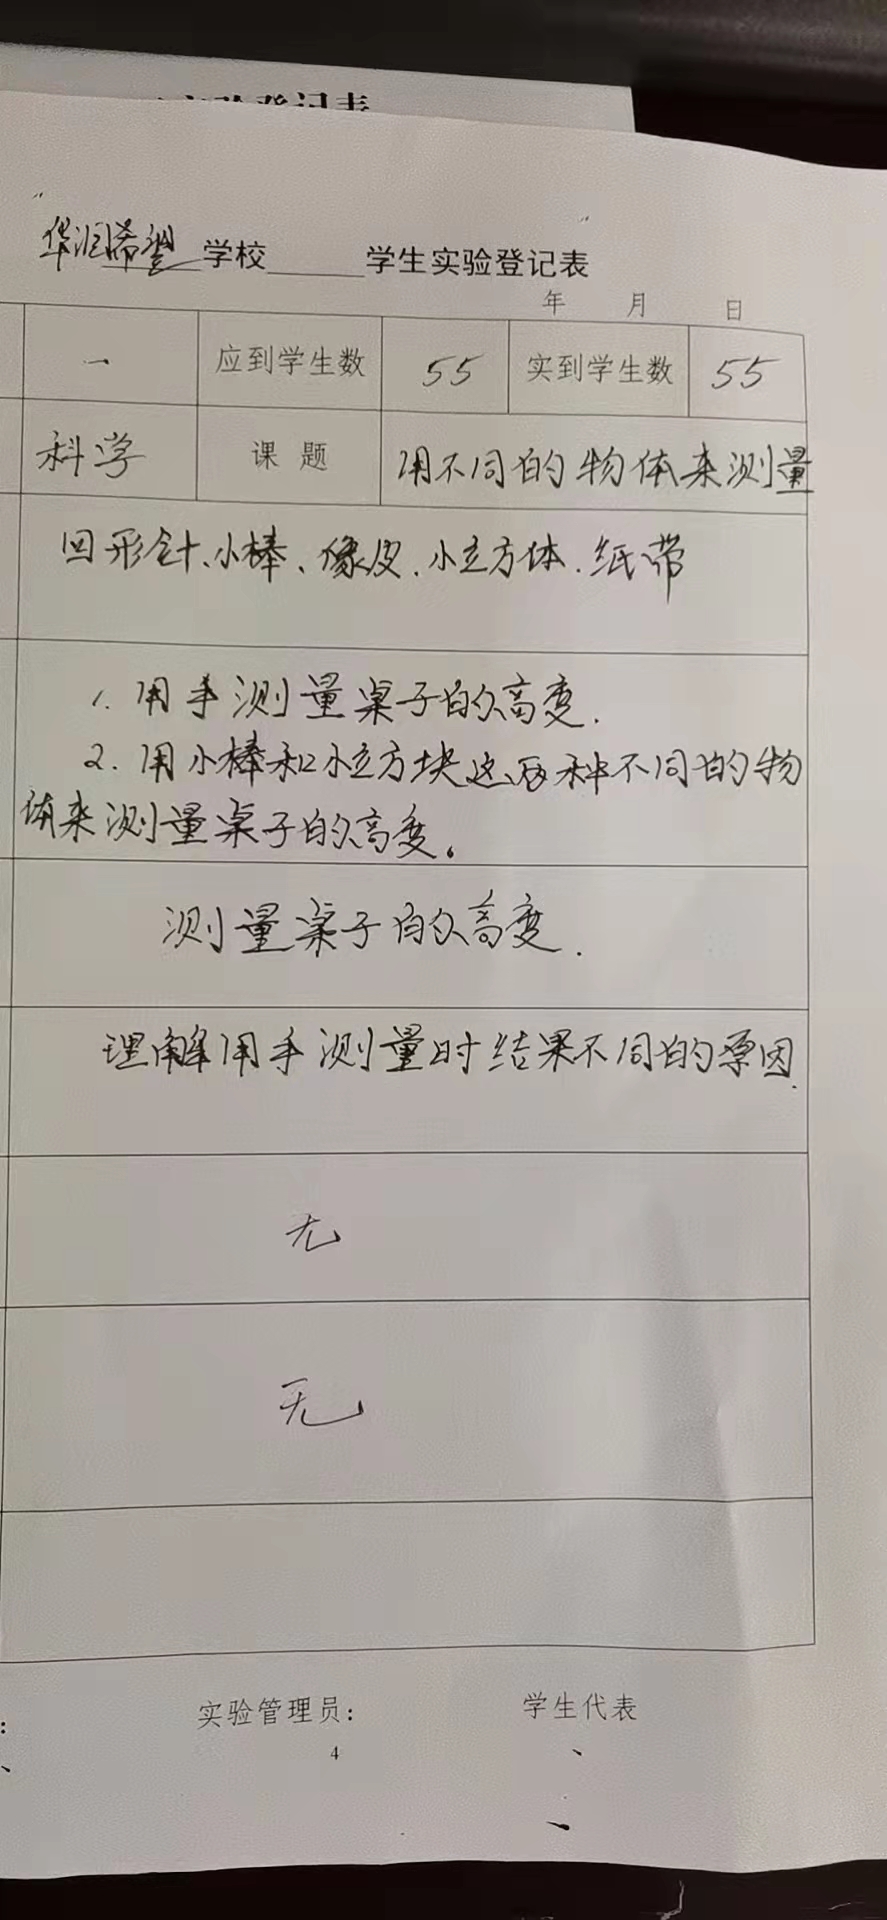 华润希望学校______学生实验登记表
年 月 日
一 应到学生数 55 实到学生数 55
科学 课 题 用不同的物体来测量
回形针、小棒、像皮、小立方体、纸带
1. 用手测量桌子的高度.
2. 用小棒和小立方块这两种不同的物
体来测量桌子的高度。
测量桌子的高度.
理解用手测量时结果不同的原因.
无
无
实验管理员: 学生代表
4